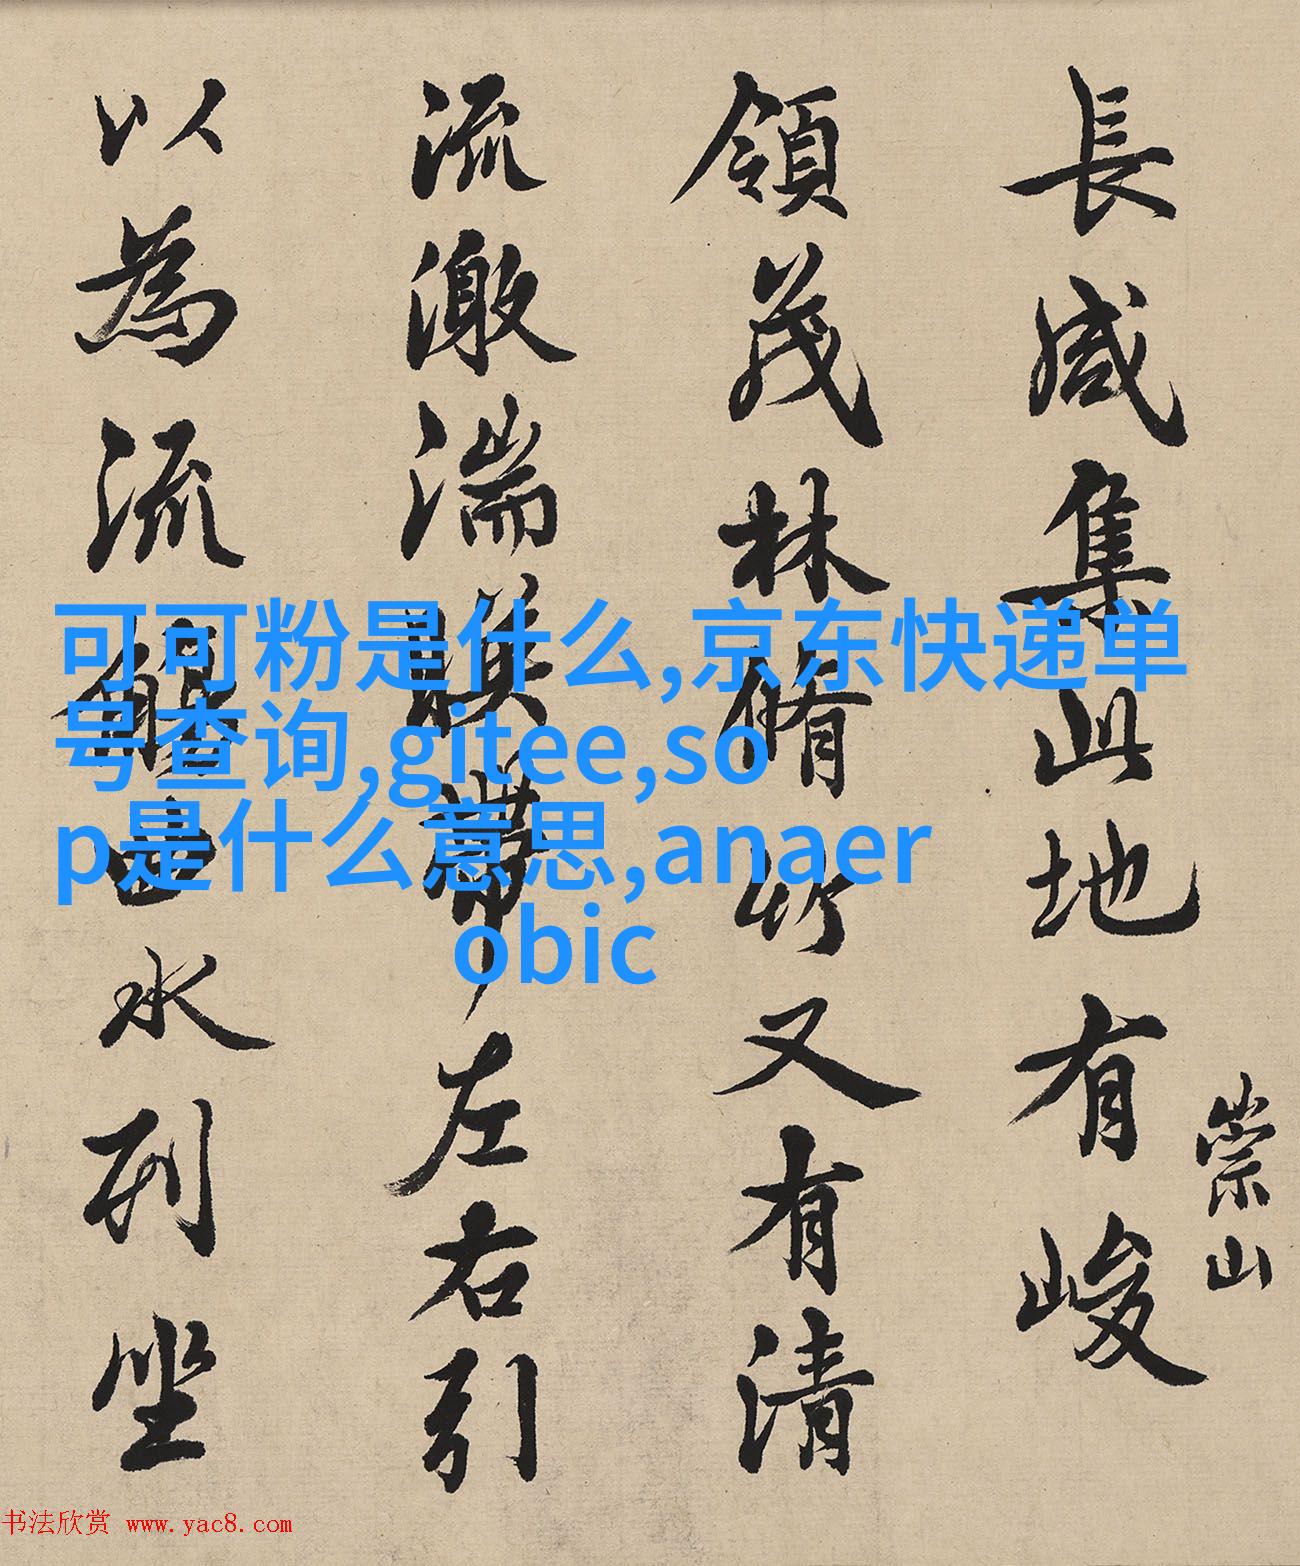 長咸集此地有峻
崇山
領茂林脩竹又有清
流激湍暎帶左右引
以為流觴曲水列坐
可可粉是什么,京东快递单
号查询,gitee,so
p是什么意思,anaer
obic
书法欣赏 www.yac8.com